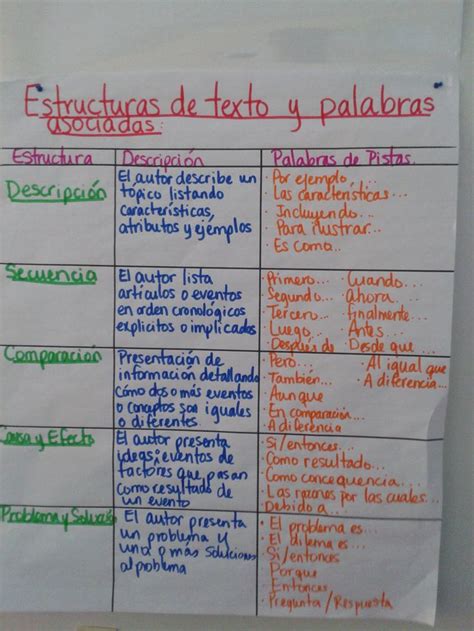 Estructuras de texto y palabras
asociadas:
Estructura Descripción Palabras de Pistas.
Descripción
El autor describe un
tópico listando
características,
atributos y ejemplos
· Por ejemplo, ....
· Las características...
· Incluyendo...
· Para ilustrar...
· Es como...
Secuencia
El autor lista
artículos o eventos
en orden cronológicos
explícitos o implicados
· Primero... · Cuando...
· Segundo... · ahora
· Tercero... · finalmente...
· Luego · Antes...
· Después de · Desde que...
Comparación
Presentación de
información detallando
cómo dos o más eventos
o conceptos son iguales
o diferentes.
· Pero... · Al igual que
· También... · A diferencia...
· Aunque
· En comparación...
· A diferencia
Causa y Efecto
El autor presenta
ideas, eventos de
factores que pasan
como resultado de
un evento
· Si/entonces...
· Como resultado...
· Como concequencia...
· Las razones por las cuales...
· Debido a...
Problema y Solución
El autor presenta
un problema y
una o más soluciones
al problema
· El problema es...
· El dilema es...
· Si/entonces
Porque
Entonces
· Pregunta/Respuesta